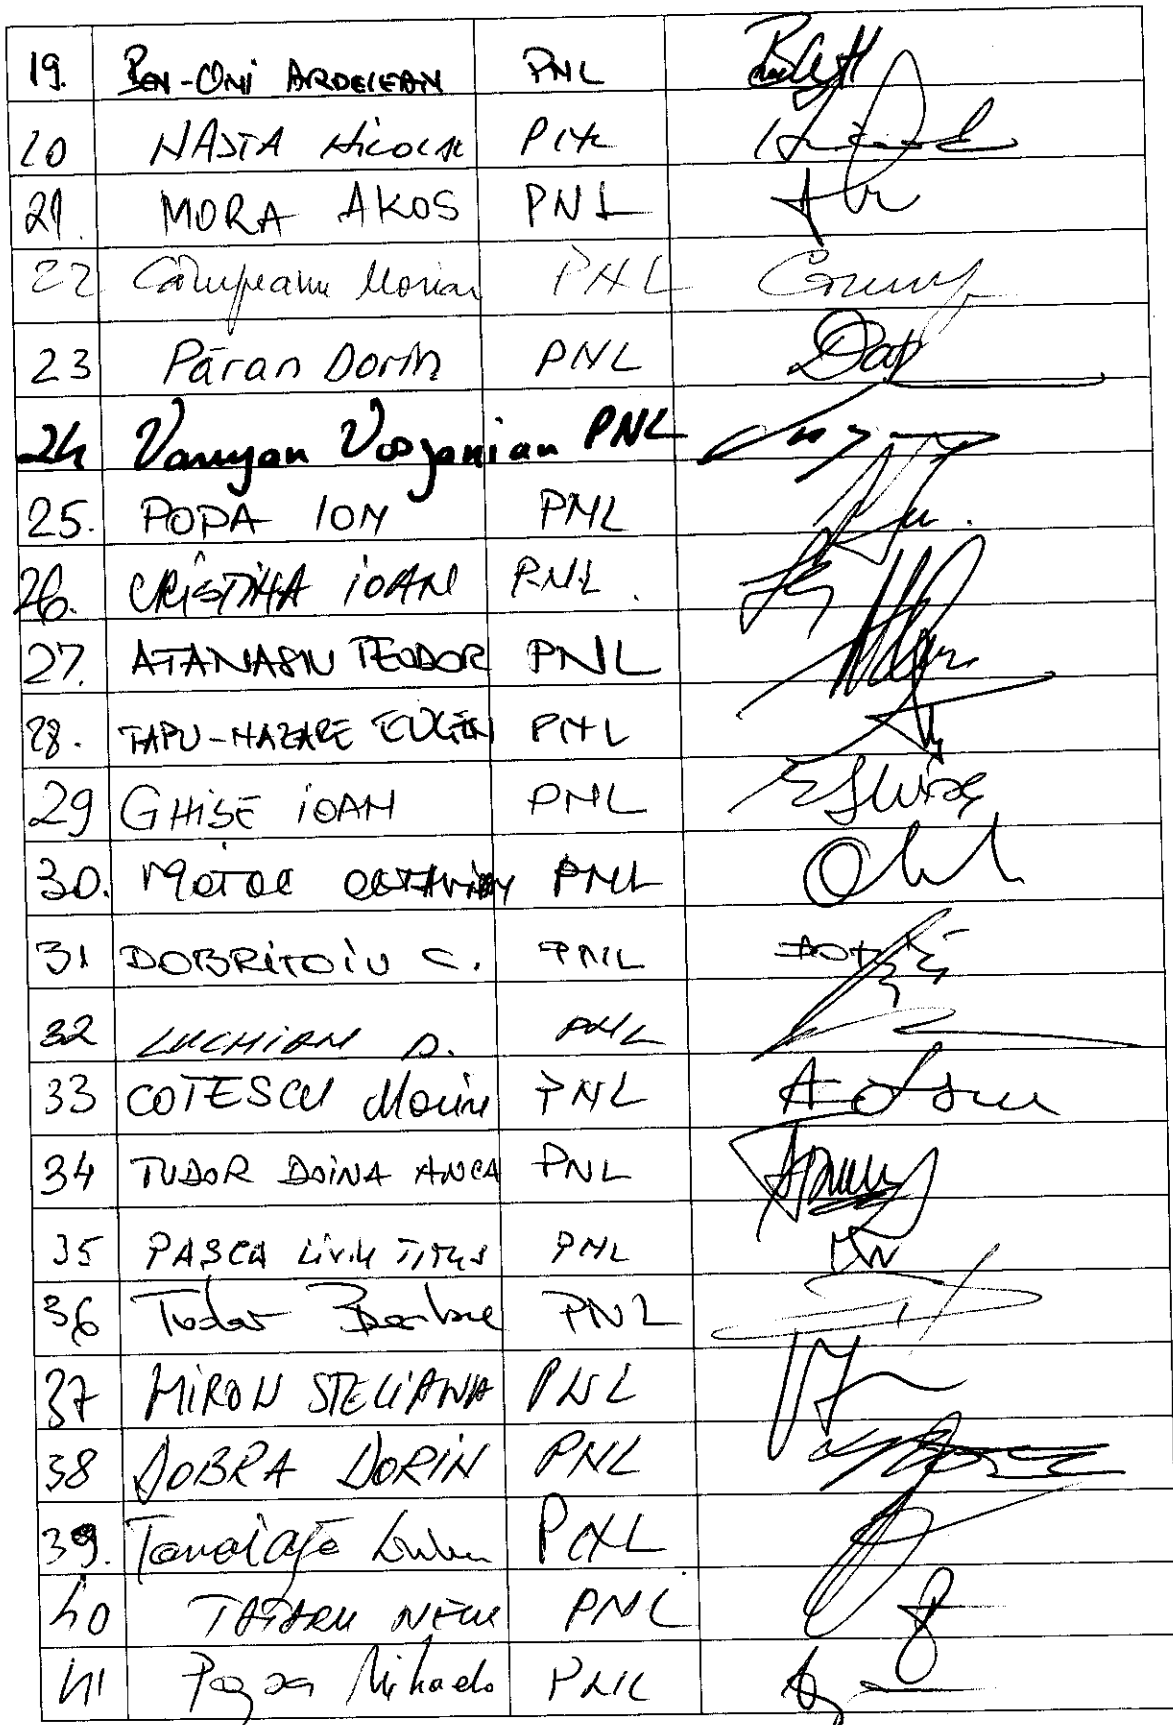 19. BEN-ONI ARDELEAN PNL
20 NASTA Nicolae PNL
21. MORA AKOS PNL
22 Câmpeanu Marian PNL
23 Păran Dorin PNL
24 Varujan Vosganian PNL
25. POPA ION PNL
26. CRISTINA IOAN PNL.
27. ATANASIU TEODOR PNL
28. TAPU-NAZARE EUGEN PNL
29 GHISE IOAN PNL
30. MOTOC OCTAVIAN PNL
31 DOBRITOIU C. PNL
32 LUCHIAN D. PNL
33 COTESCU Marin PNL
34 TUDOR DOINA ANCA PNL
35 PASCA Liviu TITUS PNL
36 Tudor Barbu PNL
37 MIRON STELIANA PNL
38 DOBRA DORIN PNL
39. PNL
40 TATARU NELU PNL
41 PNL